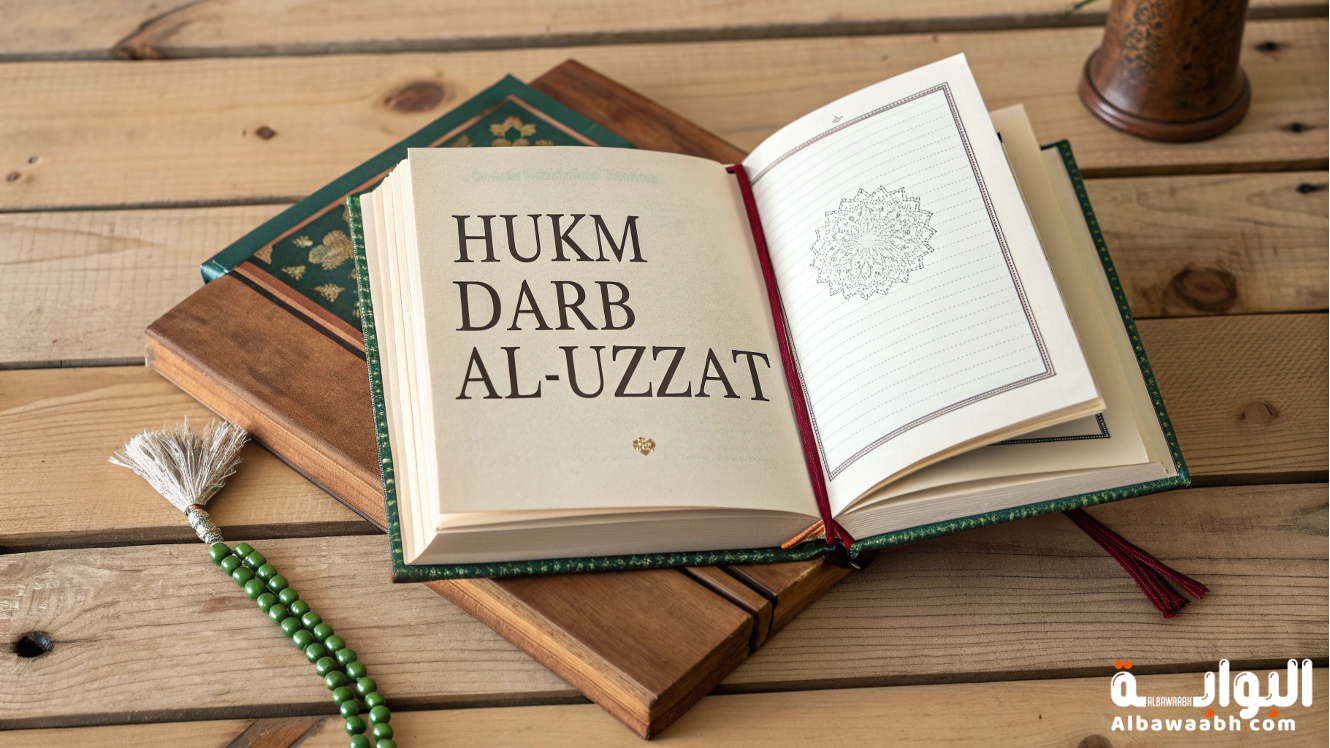 HUKM
DARB
AL-UZZAT
البوابة
ALBAWAABH
Albawaabh.com